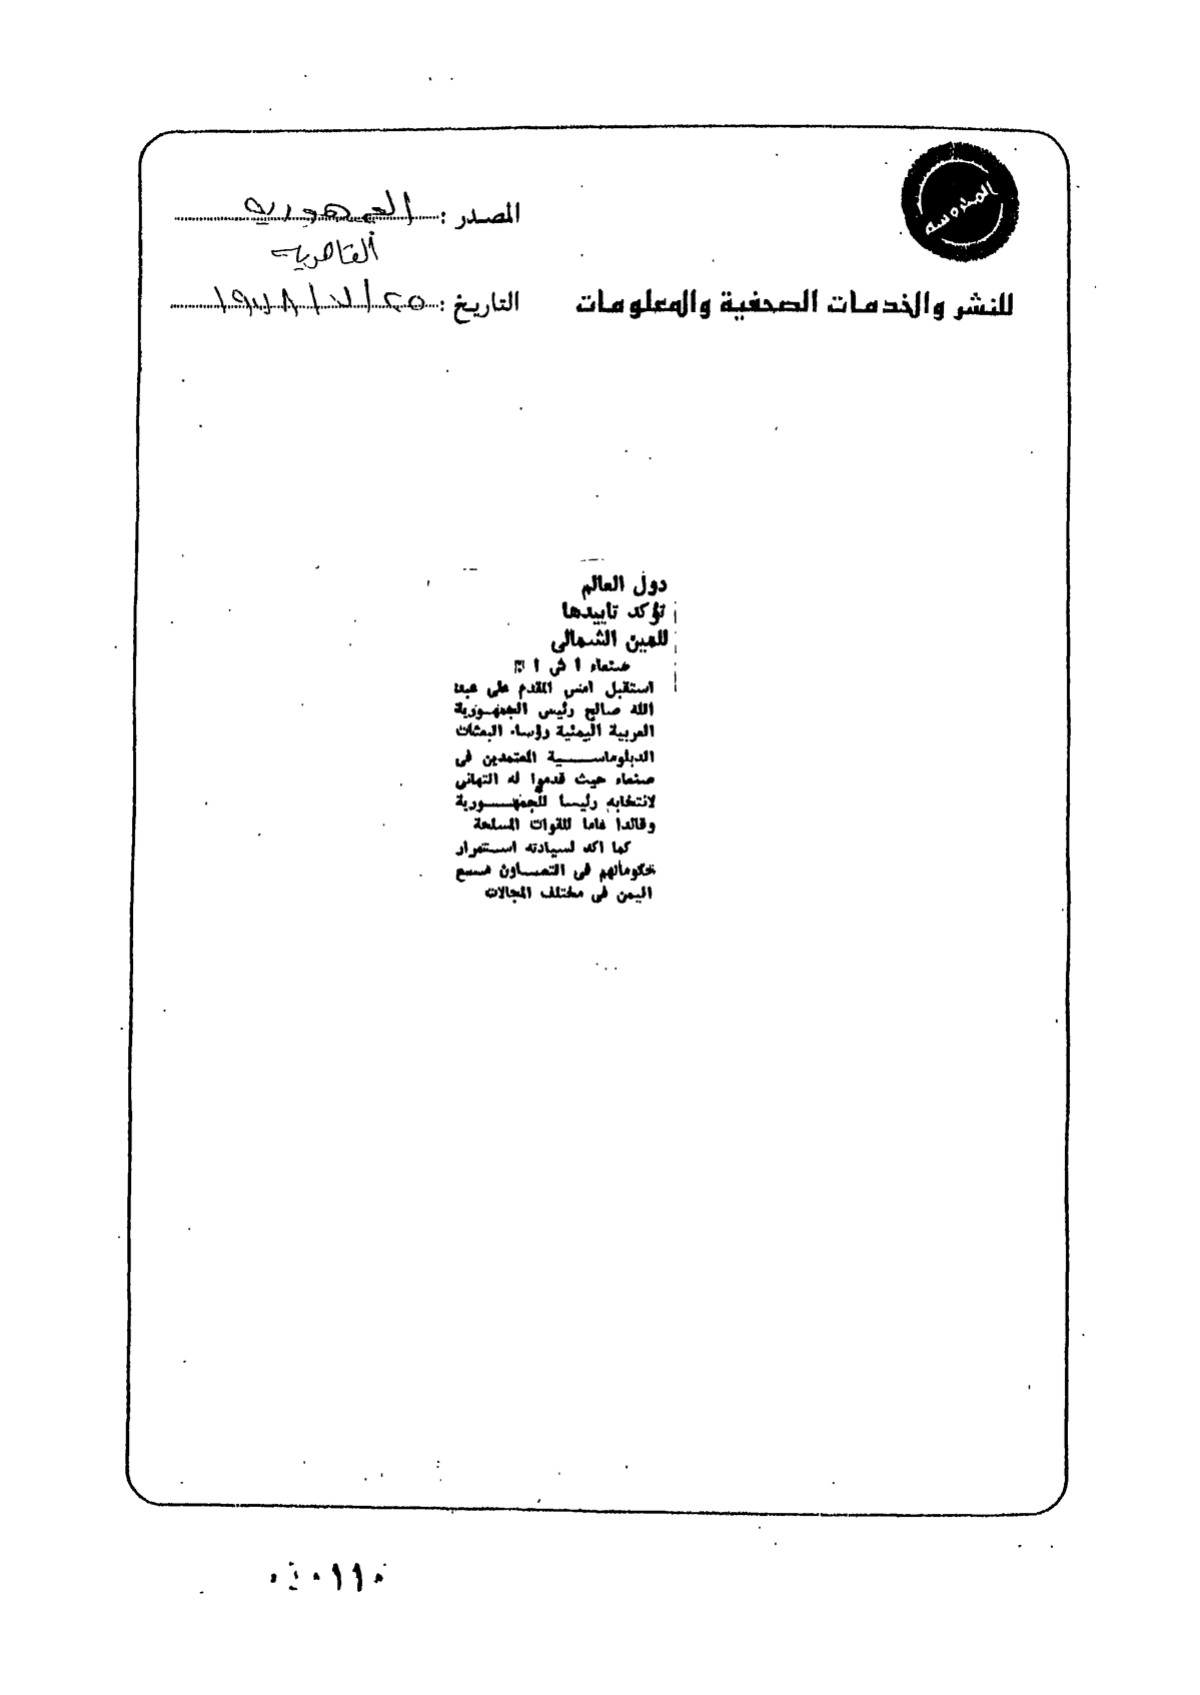 المحروسه
المصدر : الجمهورية
القاهرية
للنشر والخدمات الصحفية والمعلومات
التاريخ : ٢٥ / ٧ / ١٩٧٨
دول العالم
تؤكد تاييدها
لليمن الشمالى
صنعاء ا ش ا
استقبل امس المقدم على عبد
الله صالح رئيس الجمهورية
العربية اليمنية رؤساء البعثات
الدبلوماسية المعتمدين فى
صنعاء حيث قدموا له التهانى
لانتخابه رئيسا للجمهورية
وقائدا عاما للقوات المسلحة
كما اكد لسيادته استمرار
حكوماتهم فى التعاون مع
اليمن فى مختلف المجالات